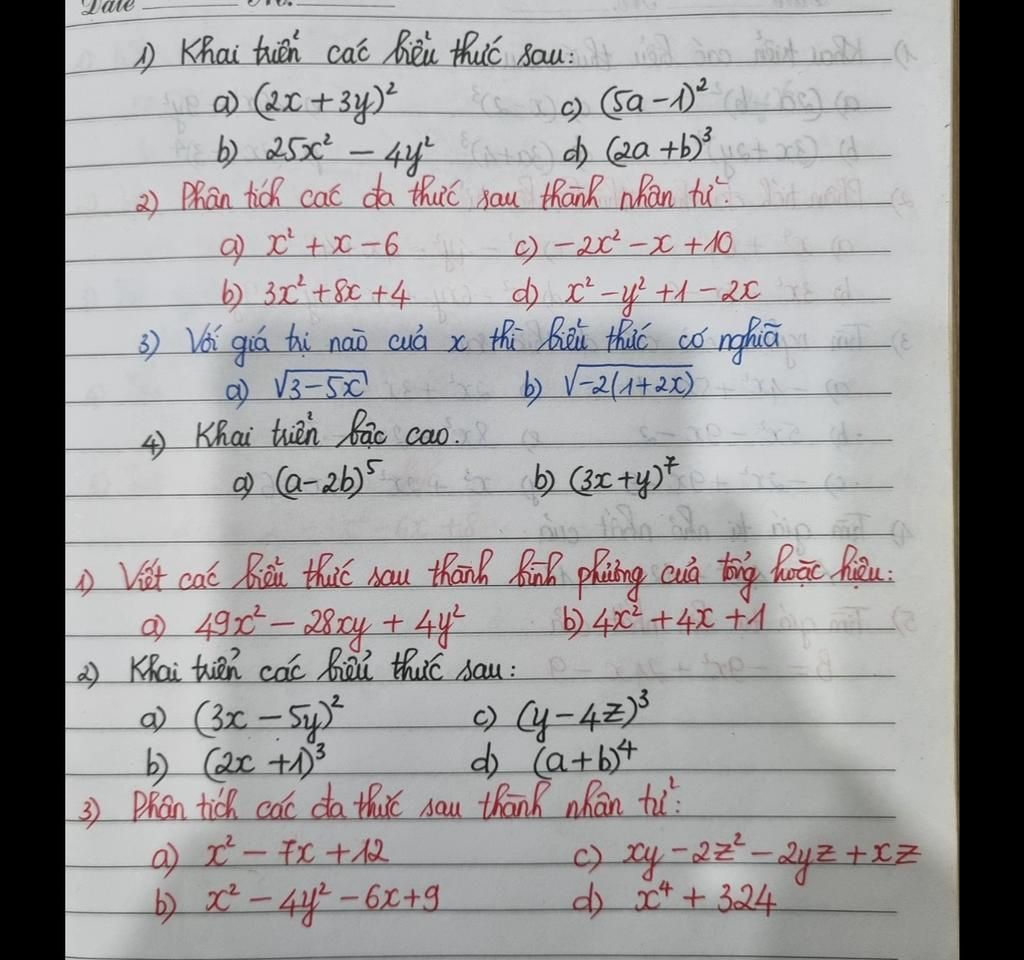 Date No.
1) Khai triển các biểu thức sau:
a) (2x + 3y)² c) (5a - 1)²
b) 25x² - 4y² d) (2a + b)³
2) Phân tích các đa thức sau thành nhân tử:
a) x² + x - 6 c) -2x² - x + 10
b) 3x² + 8x + 4 d) x² - y² + 1 - 2x
3) Với giá trị nào cuả x thì biểu thức có nghĩã
a) √3 - 5x b) √-2(1 + 2x)
4) Khai triển bậc cao.
a) (a - 2b)⁵ b) (3x + y)⁷
1) Viết các biểu thức sau thành bình phương cuả tổng hoặc hiệu:
a) 49x² - 28xy + 4y² b) 4x² + 4x + 1
2) Khai triển các biểu thức sau:
a) (3x - 5y)² c) (y - 4z)³
b) (2x + 1)³ d) (a + b)⁴
3) Phân tích các đa thức sau thành nhân tử:
a) x² - 7x + 12 c) xy - 2z² - 2yz + xz
b) x² - 4y² - 6x + 9 d) x⁴ + 324